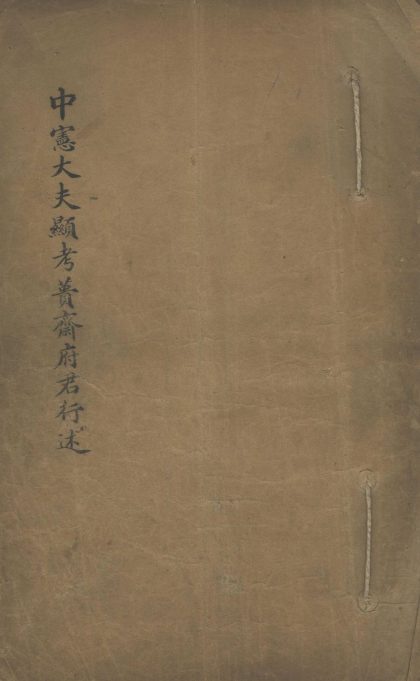 中憲大夫顯考蕢齋府君行述